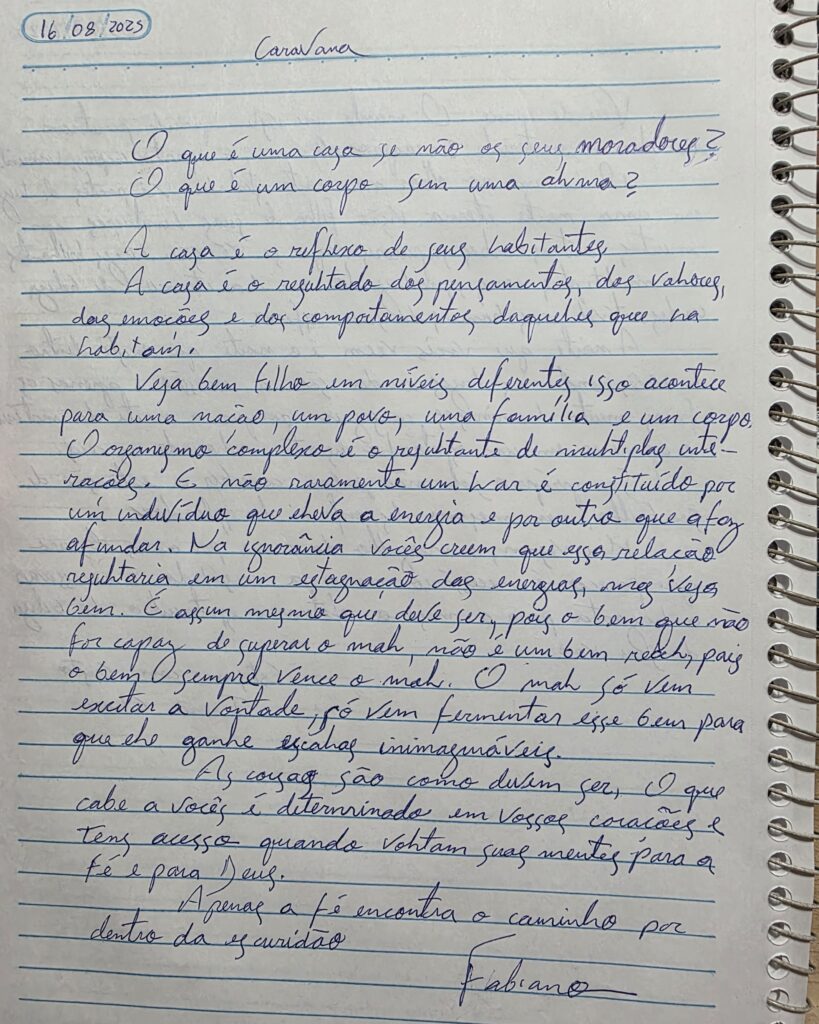 16/08/2025
Caravana
O que é uma casa se não os seus moradores?
O que é um corpo sem uma alma?
A casa é o reflexo de seus habitantes.
A casa é o resultado dos pensamentos, dos valores,
das emoções e dos comportamentos daqueles que na
habitam.
Veja bem filho em níveis diferentes isso acontece
para uma nação, um povo, uma família e um corpo.
O organismo complexo é o resultante de multiplas inte-
rações. E não raramente um lar é constituído por
um indivíduo que eleva a energia e por outro que a faz
afundar. Na ignorância vocês creem que essa relação
resultaria em um estagnação das energias, mas veja
bem. É assim mesmo que deve ser, pois o bem que não
for capaz de superar o mal, não é um bem real, pois
o bem sempre vence o mal. O mal só vem
excitar a vontade, só vem fermentar esse bem para
que ele ganhe escalas inimagináveis.
As coisas são como devem ser, O que
cabe a vocês é determinado em vossos corações e
tens acesso quando voltam suas mentes para a
fé e para Deus.
Apenas a fé encontra o caminho por
dentro da escuridão
Fabiano